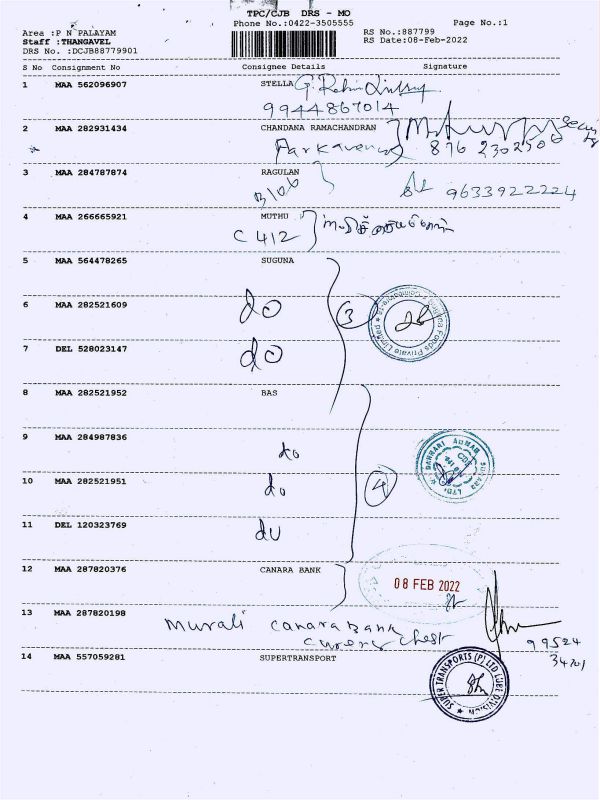 TPC/CJB DRS - MO
Phone No.:0422-3505555
Page No.:1
Area :P N PALAYAM
Staff :THANGAVEL
DRS No. :DCJB88779901
RS No.:887799
RS Date:08-Feb-2022
S No Consignment No Consignee Details Signature
1 MAA 562096907 STELLA
9944867014
2 MAA 282931434 CHANDANA RAMACHANDRAN
Park avenue 876 2302506
3 MAA 284787874 RAGULAN
9633922224
4 MAA 266665921 MUTHU
C 412
5 MAA 564478265 SUGUNA
6 MAA 282521609 do
3
7 DEL 528023147 do
8 MAA 282521952 BAS
9 MAA 284987836 do
10 MAA 282521951 do
4
11 DEL 120323769 do
12 MAA 287820376 CANARA BANK
08 FEB 2022
13 MAA 287820198
Murali Canara Bank
Chest
99524
34701
14 MAA 557059281 SUPERTRANSPORT
SUPER TRANSPORTS (P) LTD LUBE DIVISION